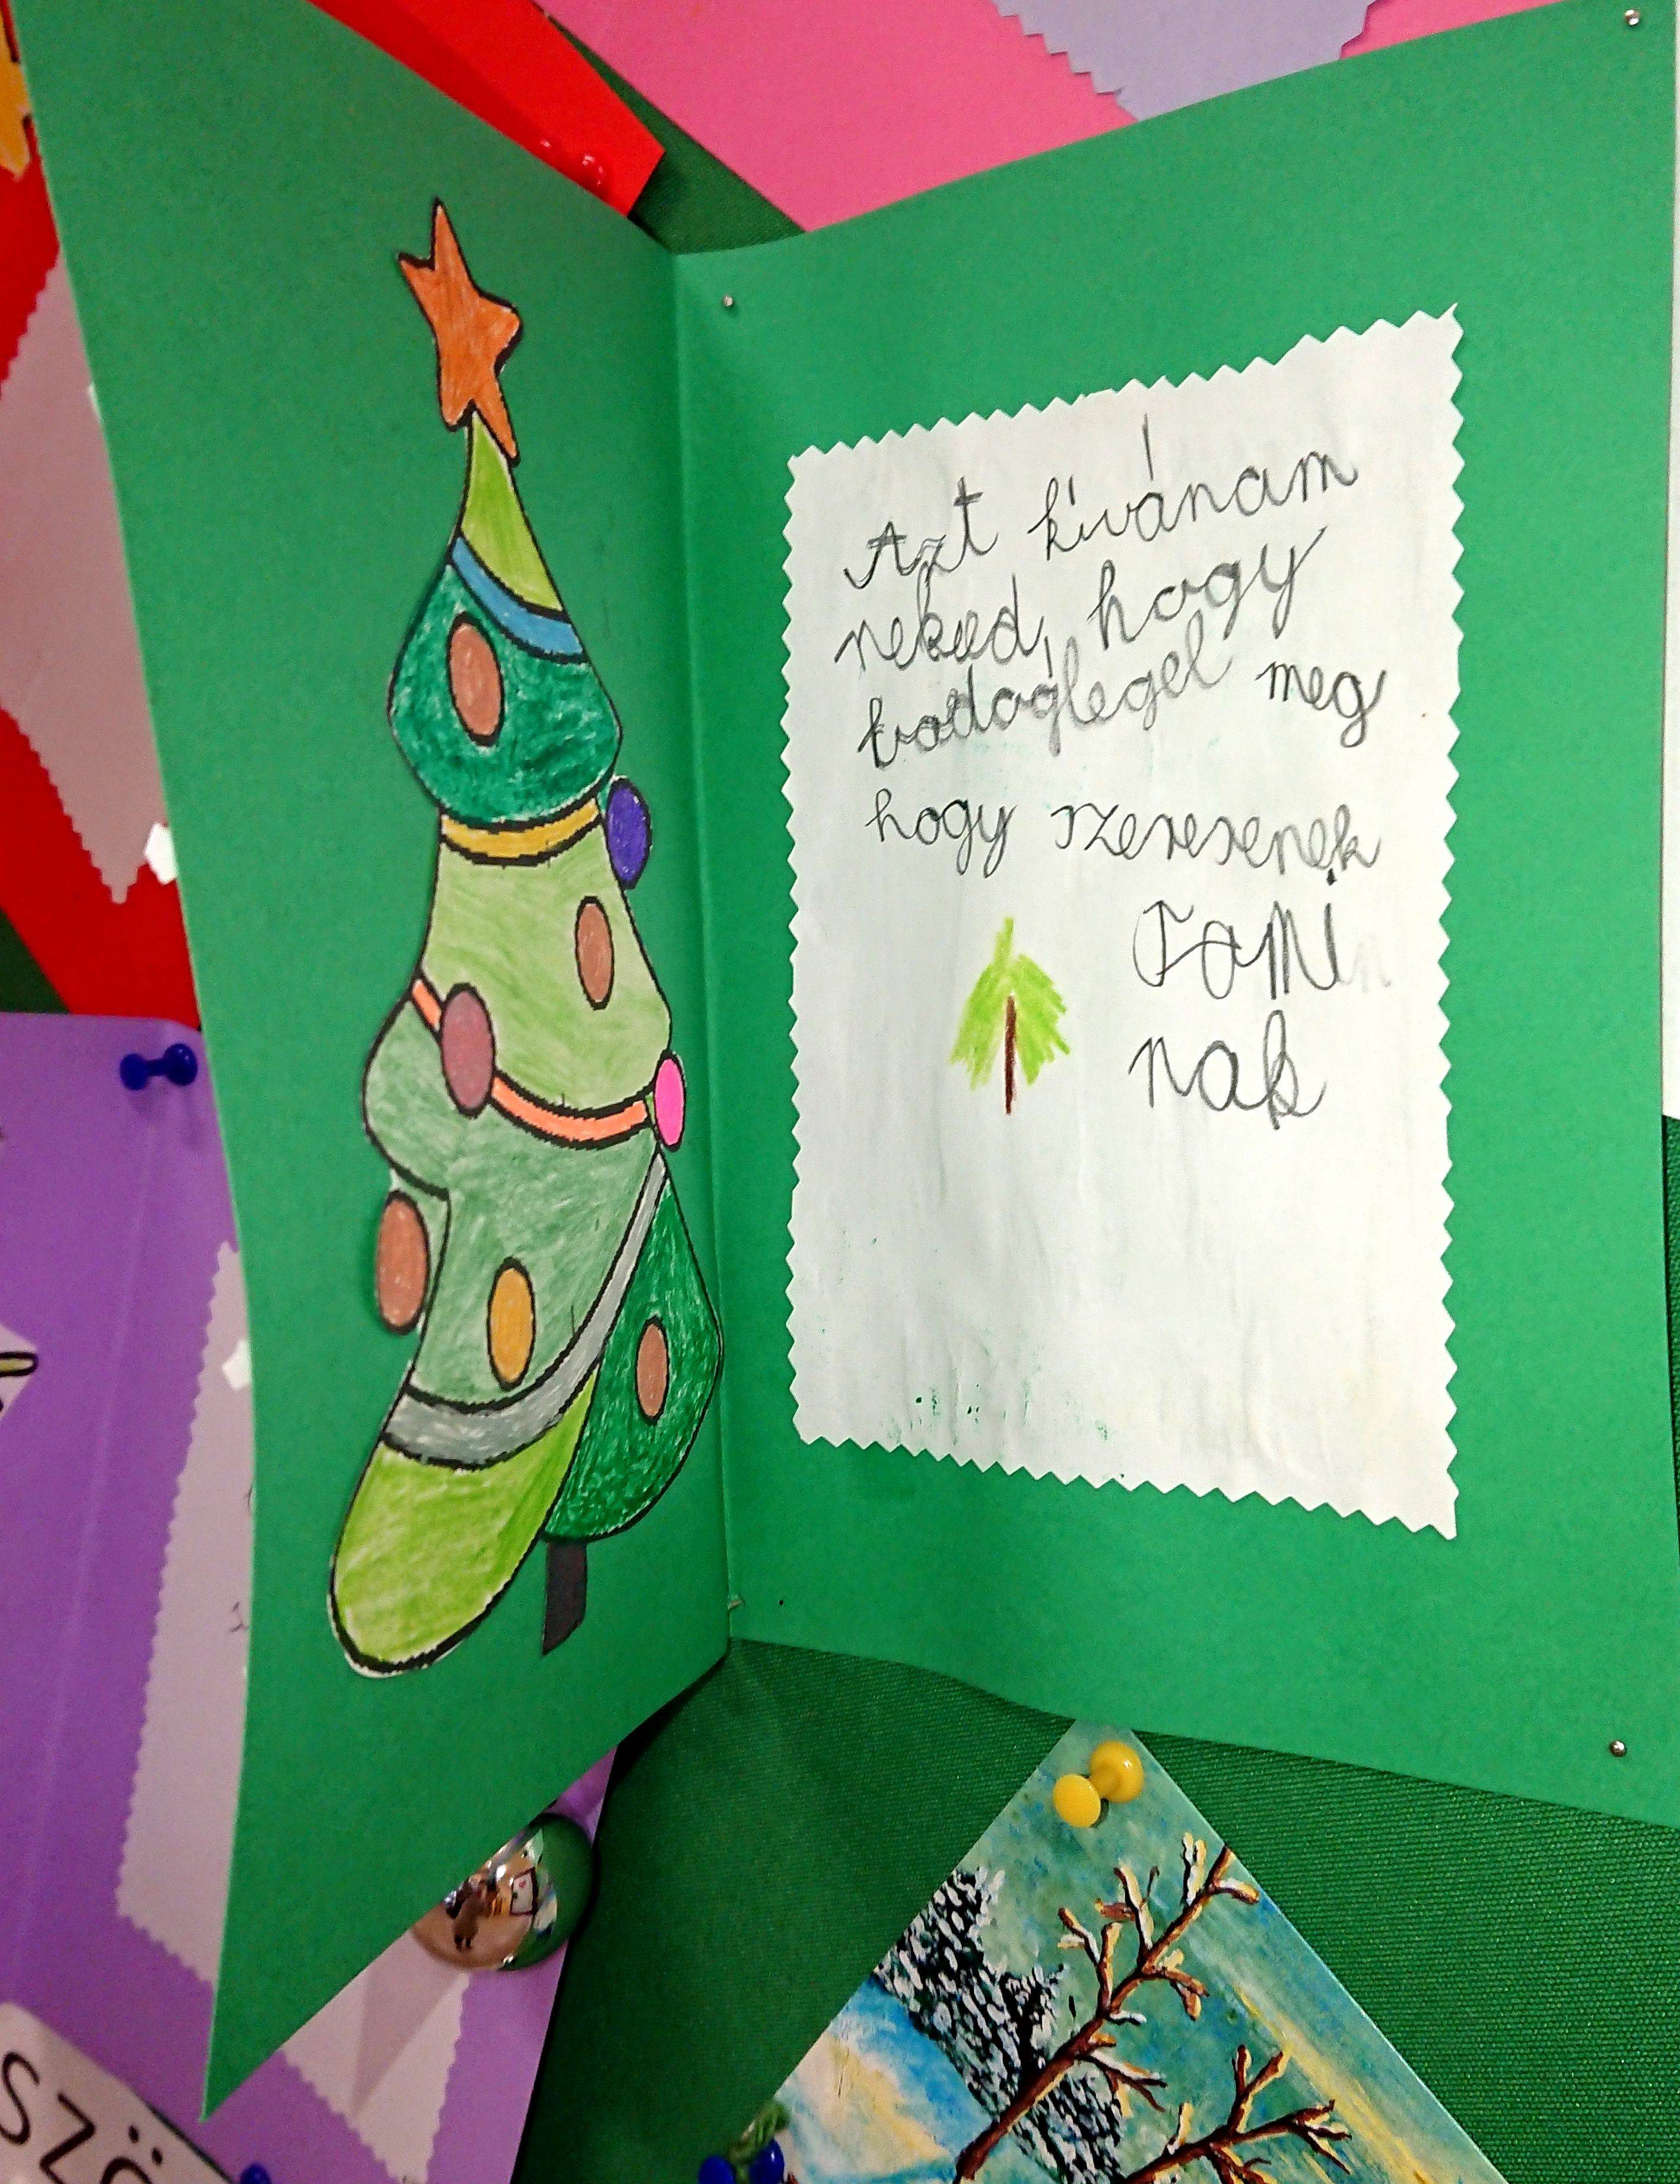 Azt kívánam
neked, hogy
bodoglegel meg
hogy szeresenek
Tomi
nak
SZÖ